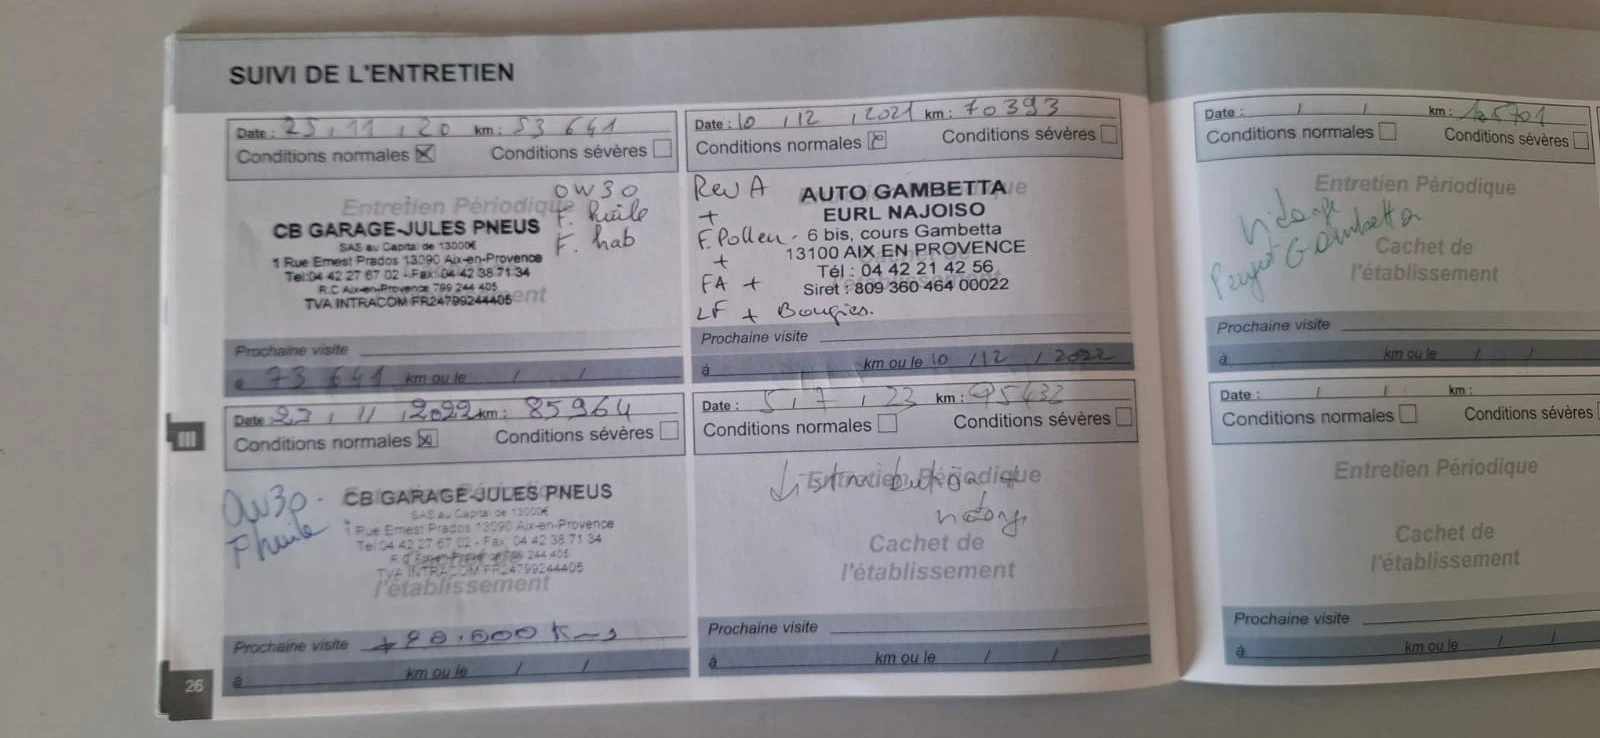 SUIVI DE L'ENTRETIEN
Date : 25 / 11 / 20 km : 53 641
Conditions normales Conditions sévères
Entretien Périodique
0W30
F. huile
F. hab
CB GARAGE-JULES PNEUS
SAS au Capital de 13000€
1 Rue Ernest Prados 13090 Aix-en-Provence
Tel:04 42 27 67 02 - Fax: 04 42 38 71 34
R.C Aix-en-Provence 799 244 405
TVA INTRACOM FR24799244405
Prochaine visite
à 73 641 km ou le / /
Date : 10 / 12 / 2021 km : 70393
Conditions normales Conditions sévères
Rev A
+
F. Pollen
+
FA +
LF + Bougies.
AUTO GAMBETTA
EURL NAJOISO
6 bis, cours Gambetta
13100 AIX EN PROVENCE
Tél : 04 42 21 42 56
Siret : 809 360 464 00022
Prochaine visite
à km ou le 10 / 12 / 2022
Date : 23 / 11 / 2022 km : 85964
Conditions normales Conditions sévères
0W30
F huile
CB GARAGE-JULES PNEUS
SAS au Capital de 13000€
1 Rue Ernest Prados 13090 Aix-en-Provence
Tel:04 42 27 67 02 - Fax: 04 42 38 71 34
TVA INTRACOM FR24799244405
l'établissement
Prochaine visite + 20.000 Kms
à km ou le / /
Date : 5 / 7 / 23 km : 95432
Conditions normales Conditions sévères
Entretien Périodique
Cachet de
l'établissement
Prochaine visite
à km ou le / /
III
26
Date : / / km : 125701
Conditions normales Conditions sévères
Entretien Périodique
Gambetta
Cachet de
l'établissement
Prochaine visite
à km ou le / /
Date : / / km :
Conditions normales Conditions sévères
Entretien Périodique
Cachet de
l'établissement
Prochaine visite
à km ou le / /